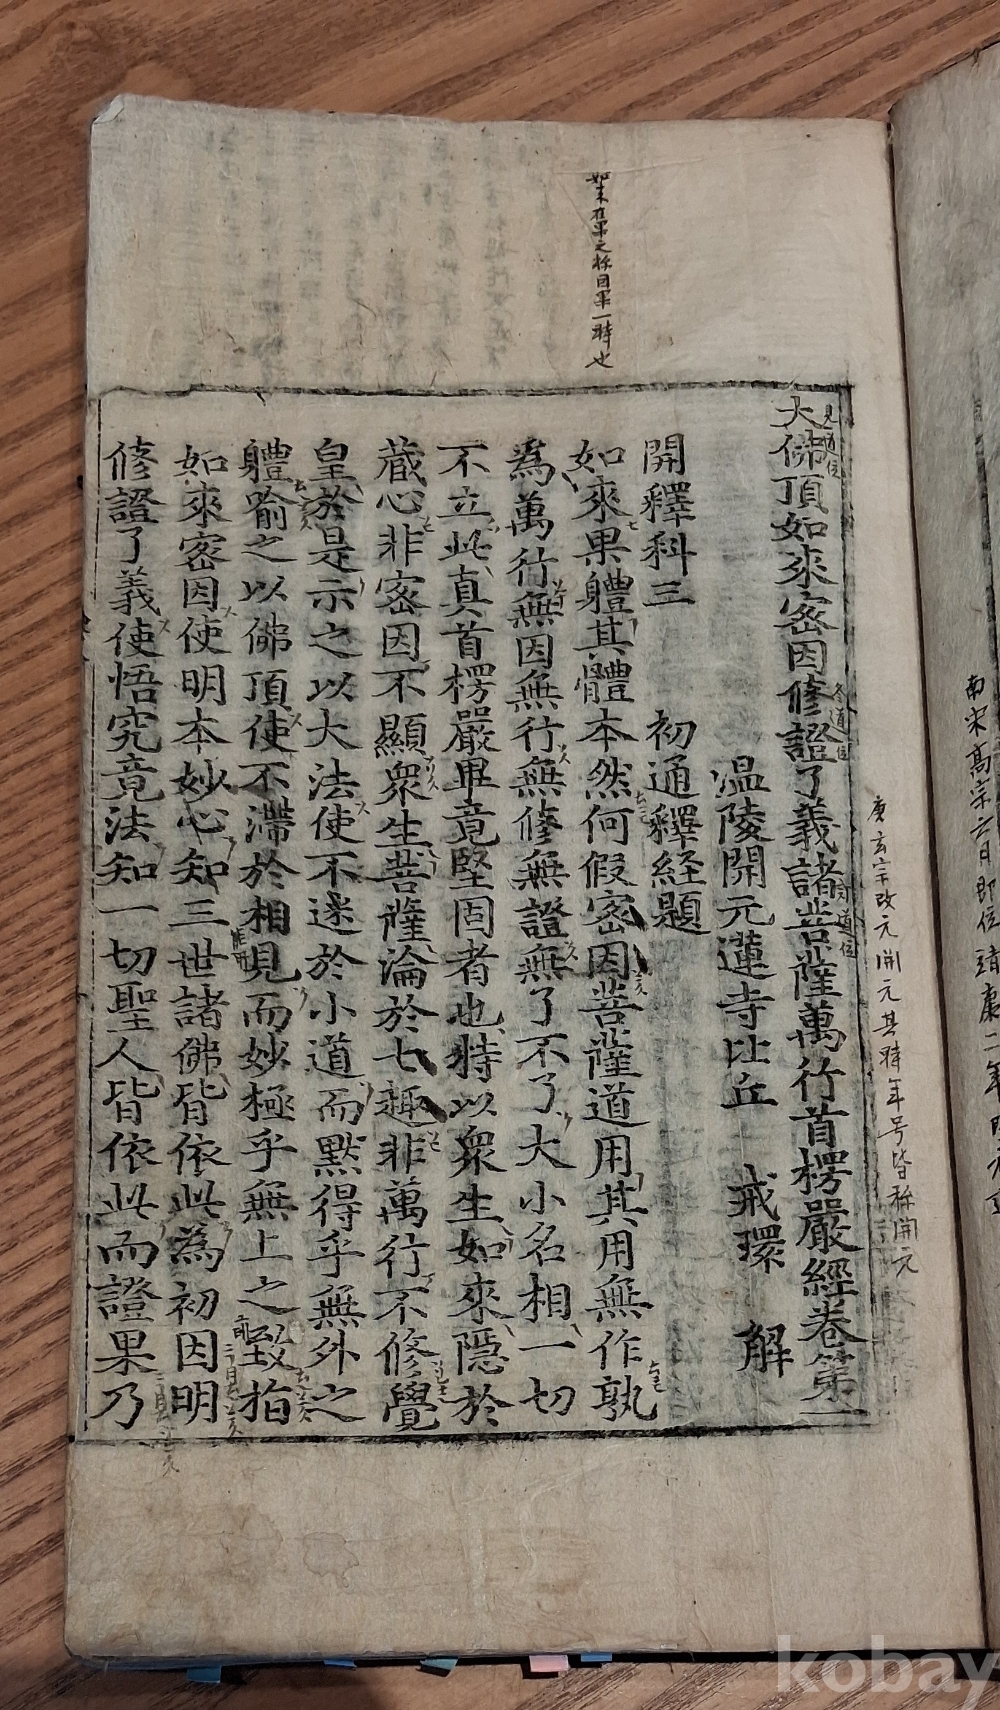 大佛頂如來密因修證了義諸菩薩萬行首楞嚴經卷第一
溫陵開元蓮寺比丘 戒環 解
開釋科三 初通釋經題
如來果體其體本然何假密因菩薩道用其用無作孰
為萬行無因無行無修無證無了不了大小名相一切
不立此真首楞嚴畢竟堅固者也特以眾生如來隱於
藏心非密因不顯眾生菩薩淪於七趣非萬行不修覺
皇於是示之以大法使不迷於小道而默得乎無外之
體喻之以佛頂使不滯於相見而妙極乎無上之致指
如來密因使明本妙心知三世諸佛皆依此為初因明
修證了義使悟究竟法知一切聖人皆依此而證果乃
見道位
修道位
如來在果之称因果一時也
玄宗改元開元其時年号皆称開元
南宋高宗五月即位靖康二年
kobay